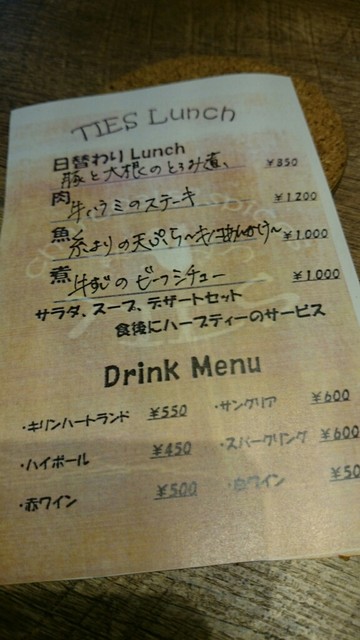 TIES Lunch
日替わり Lunch
豚と大根のとろみ煮、 ¥850
肉 牛ハラミのステーキ ¥1200
魚 糸よりの天ぷら〜きのこあんかけ〜 ¥1,000
煮 牛すじのビーフシチュー ¥1,000
サラダ、スープ、デザートセット
食後にハーブティーのサービス
Drink Menu
・キリンハートランド ¥550 ・サングリア ¥600
・ハイボール ¥450 ・スパークリング ¥600
・赤ワイン ¥500 ・白ワイン ¥50